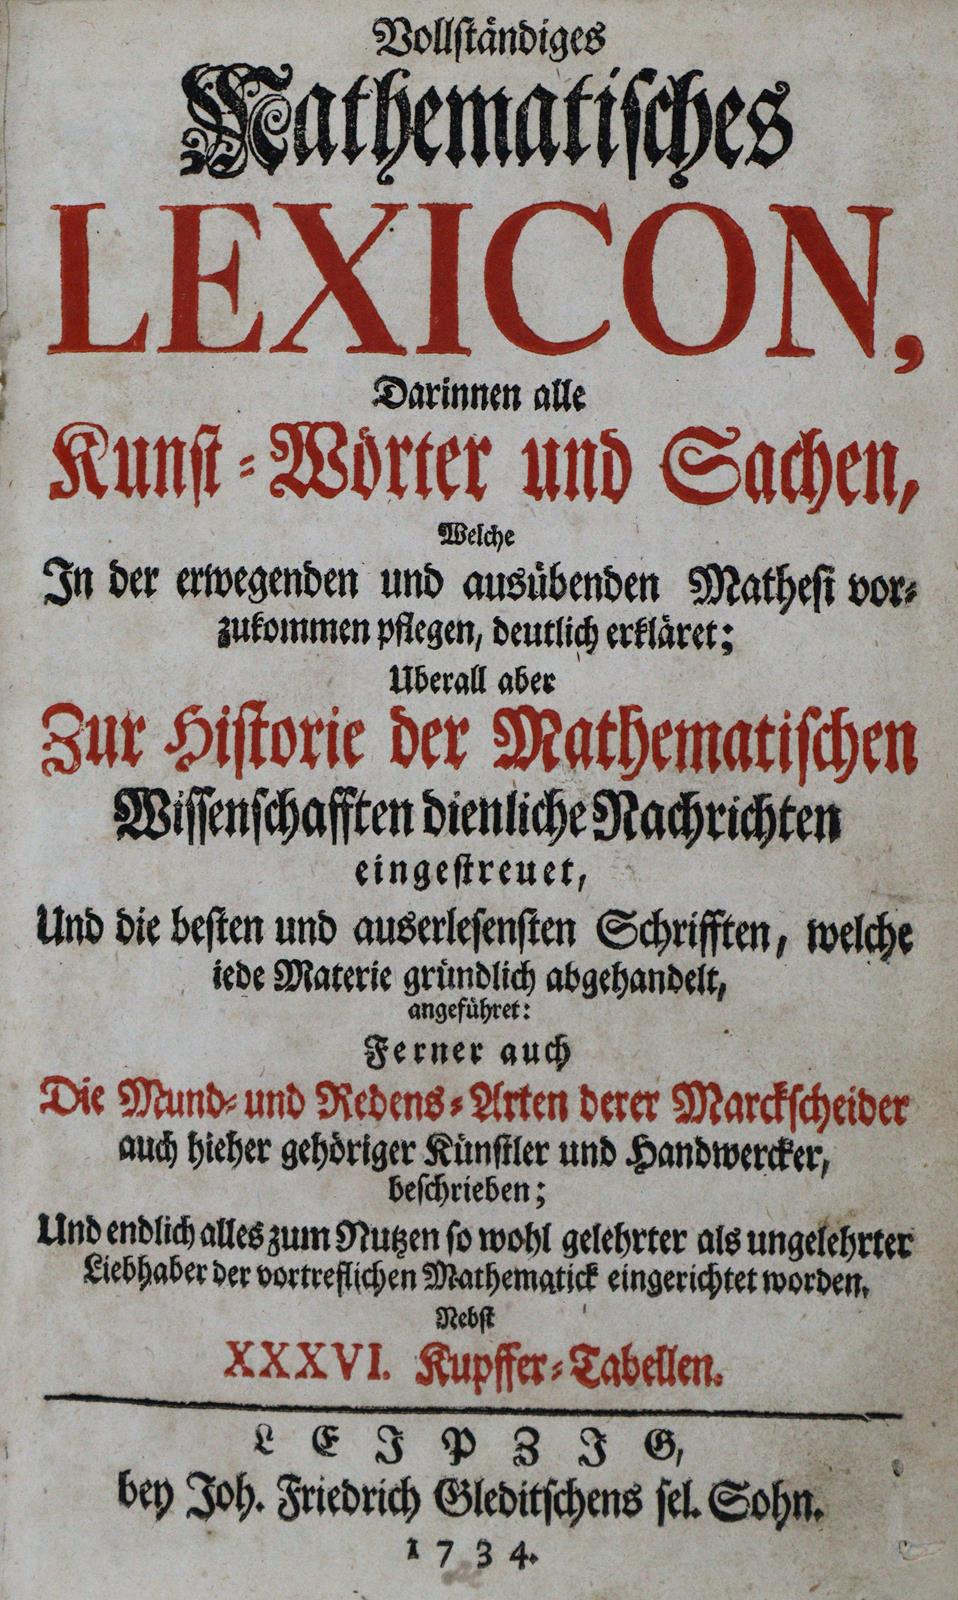 Vollständiges
Mathematisches
LEXICON,
Darinnen alle
Kunst-Wörter und Sachen,
Welche
In der erwegenden und ausübenden Mathesi vor-
zukommen pflegen, deutlich erkläret;
Uberall aber
Zur Historie der Mathematischen
Wissenschafften dienliche Nachrichten
eingestreuet,
Und die besten und auserlesensten Schrifften, welche
iede Materie gründlich abgehandelt,
angeführet:
Ferner auch
Die Mund- und Redens-Arten derer Marckscheider
auch hieher gehöriger Künstler und Handwercker,
beschrieben;
Und endlich alles zum Nutzen so wohl gelehrter als ungelehrter
Liebhaber der vortreflichen Mathematick eingerichtet worden.
Nebst
XXXVI. Kupffer-Tabellen.
LEJPZJG,
bey Joh. Friedrich Gleditschens sel. Sohn.
1734.